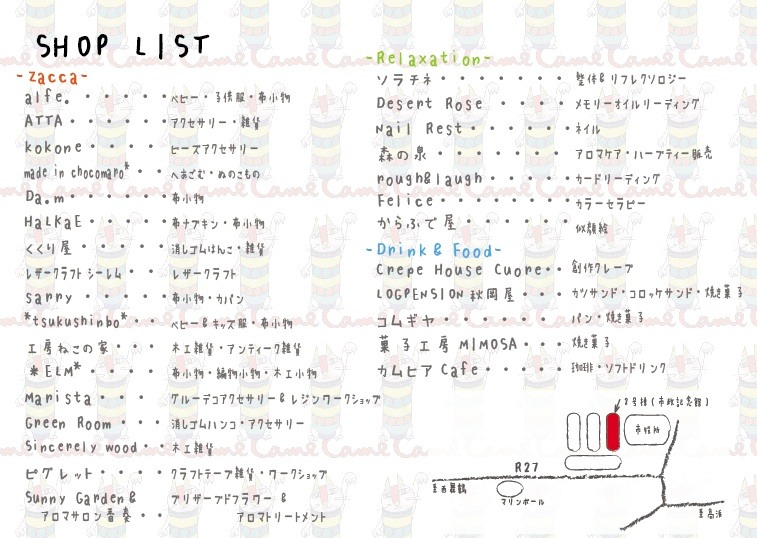 SHOP LIST
-Zacca-
alfe. ・・・・・ベビー・子供服・布小物
ATTA・・・・・アクセサリー・雑貨
kokone・・・・ビーズアクセサリー
made in chocomaro*・・へあごむ・ぬのこもの
Da.m・・・・・布小物
HaLKaE・・・・布ナプキン・布小物
くくり屋・・・・消しゴムはんこ・雑貨
レザークラフト シーレム・・レザークラフト
sanny・・・・・布小物・カバン
*tsukushinbo*・・ベビー&キッズ服・布小物
工房ねこの家・・・木工雑貨・アンティーク雑貨
*ELM*・・・・布小物・編物小物・木工小物
Marista・・・グルーデコアクセサリー&レジンワークショップ
Green Room・・・消しゴムハンコ・アクセサリー
Sincerely wood・・木工雑貨
ピグレット・・・・クラフトテープ雑貨・ワークショップ
Sunny Garden& プリザーブドフラワー &
アロマサロン香奏・・ アロマトリートメント
-Relaxation-
ソラチネ・・・・・・・整体&リフレクソロジー
Desert Rose ・・・・メモリーオイルリーディング
Nail Rest・・・・・ネイル
森の泉・・・・・・・アロマケア・ハーブティー販売
rough&laugh・・・・カードリーディング
Felice・・・・・・カラーセラピー
からふで屋・・・・・・似顔絵
-Drink & Food-
Crepe House Cuore・・創作クレープ
LOGPENSION 秋岡屋・・・カツサンド・コロッケサンド・焼き菓子
コムギヤ・・・・・・パン・焼き菓子
菓子工房 MIMOSA・・・焼き菓子
カムヒア Cafe・・・・珈琲・ソフトドリンク
2号棟(市政記念館)
市役所
R27
至西舞鶴
マリンホール
至高浜